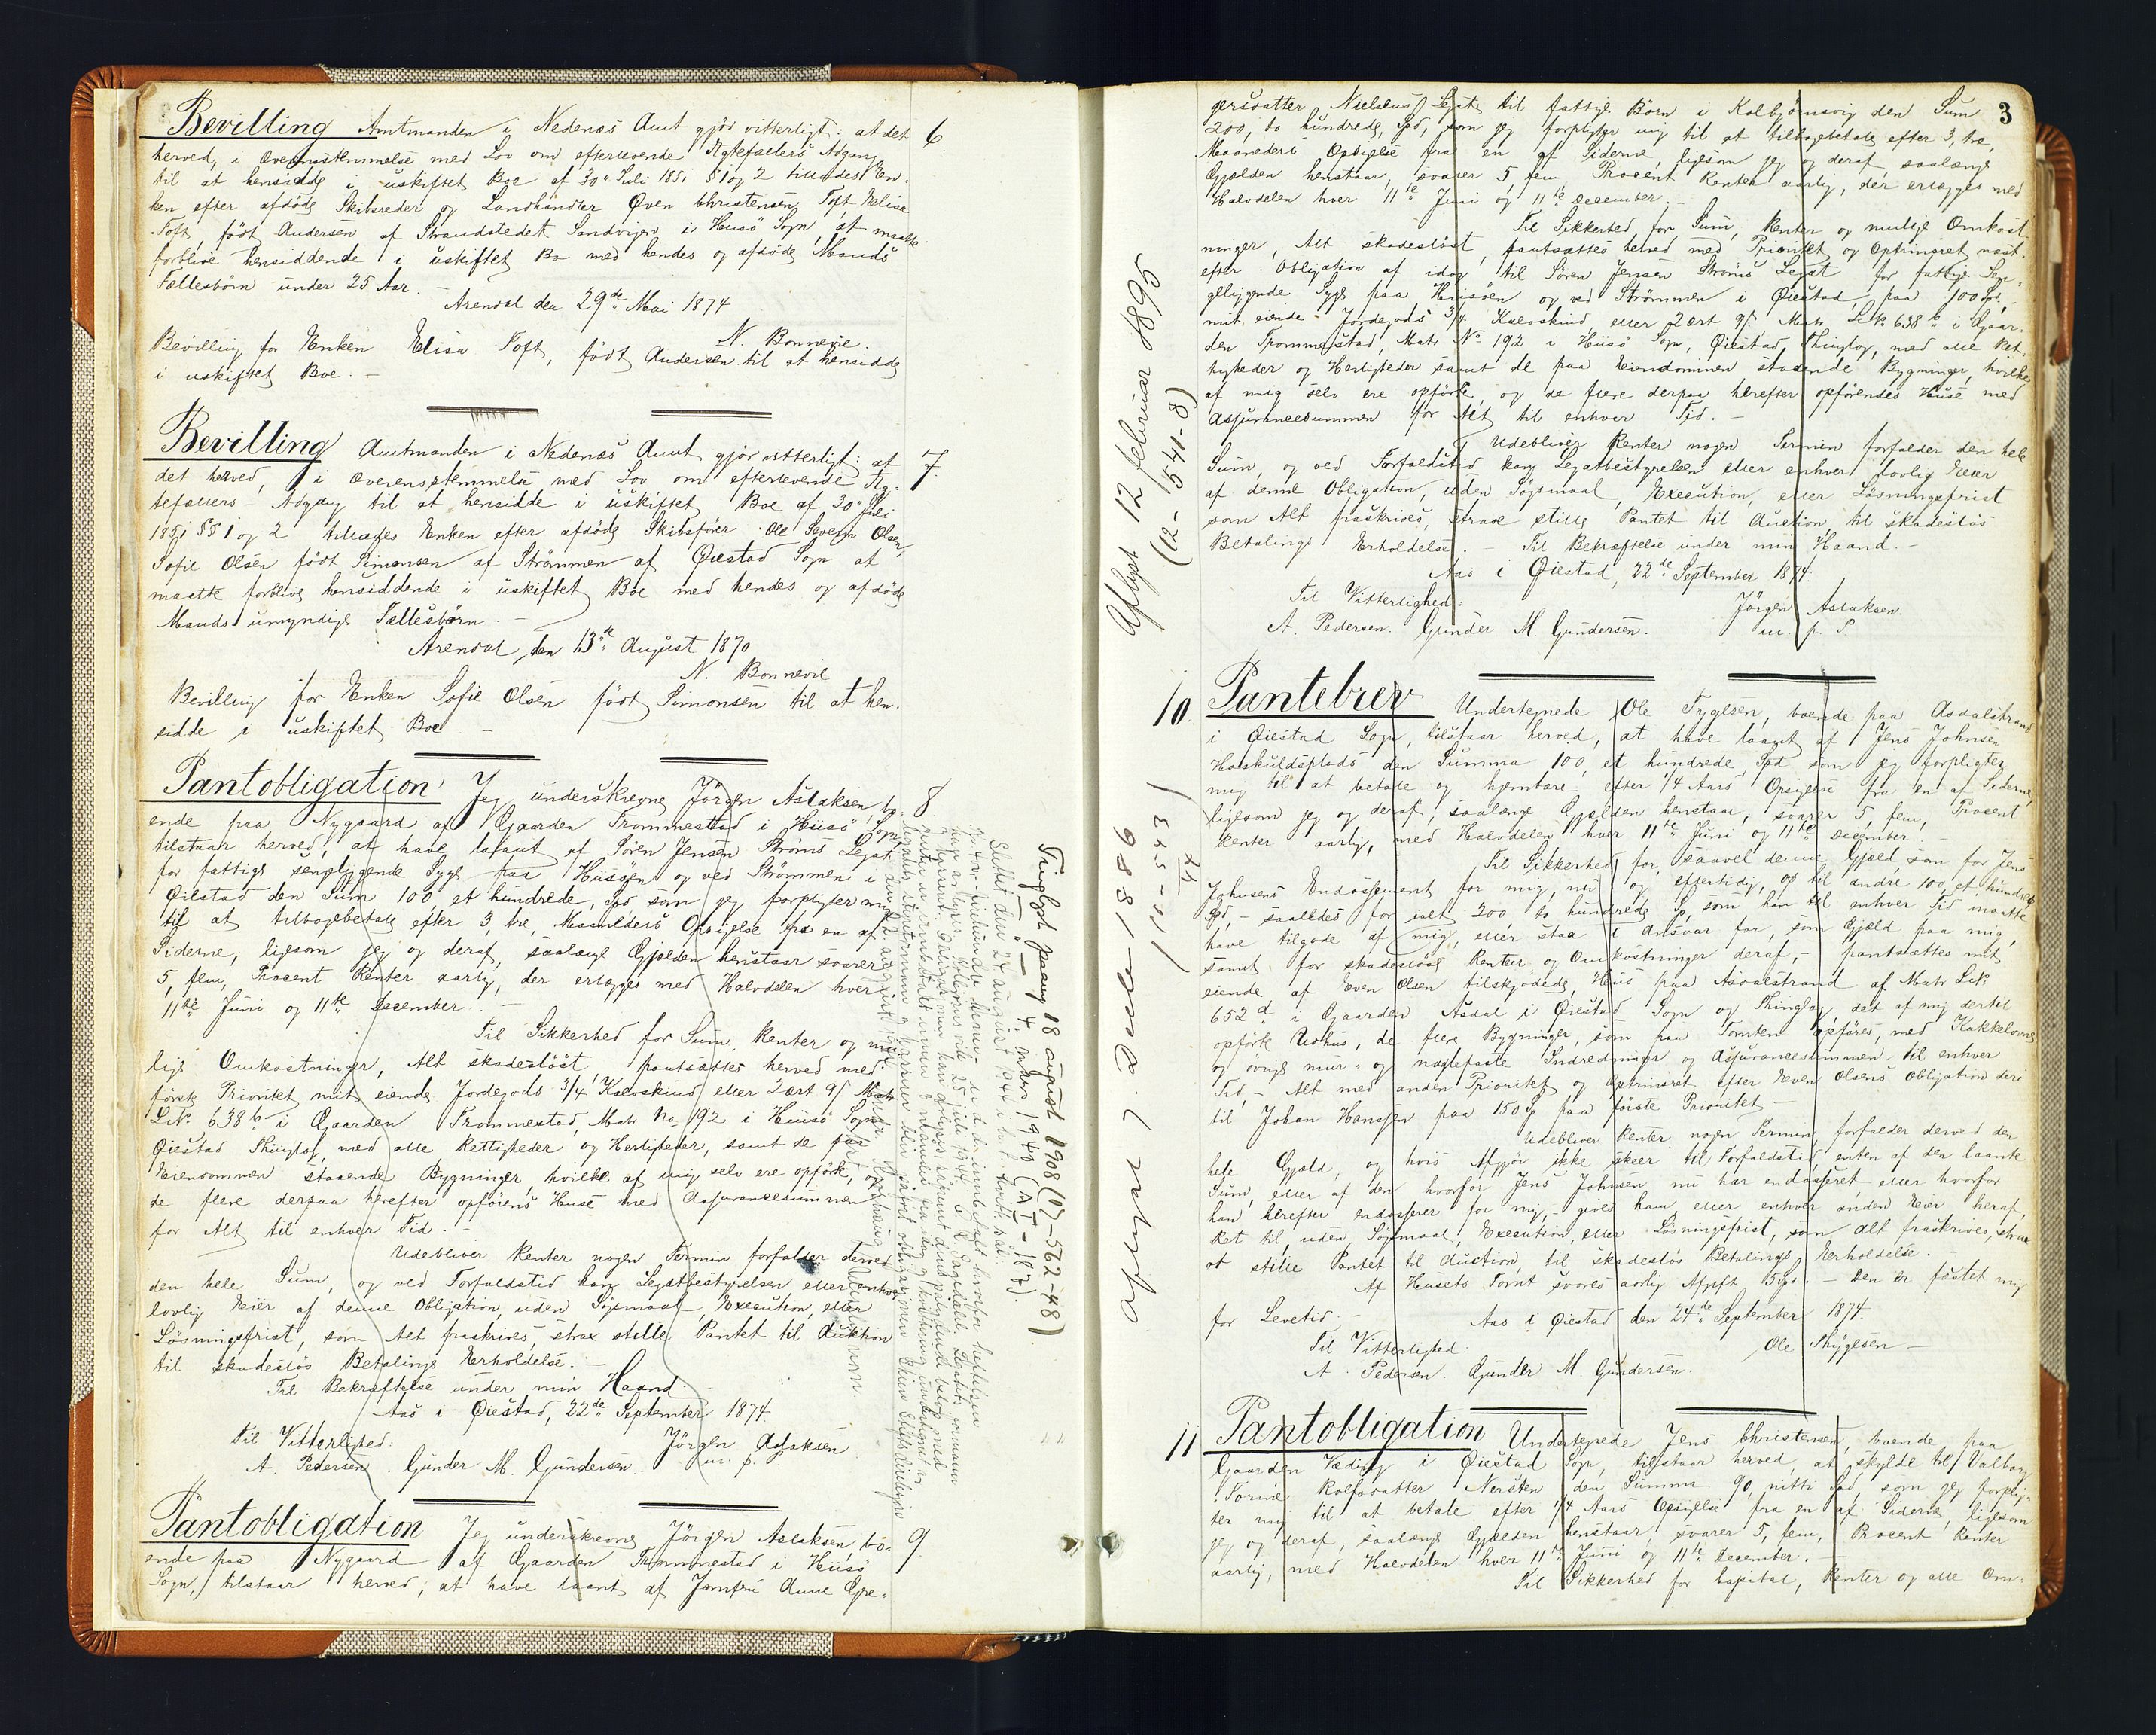 Bevilling Amtmanden i Nedenæs Amt gjør vitterligt: at det 6.
herved, i Overensstemmelse med Lov om efterlevende Ægtefællers Adgang
til at hensidde i uskiftet Boe af 30te Juli 1851 § 1 og 2 tillades En-
ken efter afdøde Skibsreder og Landhandler Øven Christensen Toft Elise
Toft, født Andersen af Strandstedet Sandvigen i Hisö Sogn, at maatte
forblive hensiddende i uskiftet Bo med hendes og afdøde Mands
Fællesbörn under 25 Aar. –
Arendal den 29de Mai 1874
N. Bonnevie.
Bevilling for Enken Elisa Toft, født Andersen til at hensidde
i uskiftet Boe. –
Bevilling Amtmanden i Nedenæs Amt gjör vitterligt: at 7.
det herved, i Overensstemmelse med Lov om efterlevende Æg-
tefællers Adgang til at hensidde i uskiftet Boe af 30te Juli
1851 §§ 1 og 2 tillades Enken efter afdøde Skibsförer Ole Severin Olsen,
Sofie Olsen født Simonsen af Strömmen af Øiestad Sogn at
maatte forblive hensiddende i uskiftet Boe med hendes og afdøde
Mands umyndige Fællesbörn. –
Arendal, den 13de August 1870
N. Bonnevie
Bevilling for Enken Sofie Olsen født Simonsen til at hen-
sidde i uskiftet Boe. –
Pantobligation. Jeg underskrevne Jörgen Aslaksen, bo- 8
ende paa Nygaard af Gaarden Trommestad i Hiisö Sogn,
tilstaar herved, at have laant af Sören Jensen Ströms Legat
for fattige sengeliggende Syge paa Hiisöen og ved Strömmen i
Øiestad den Sum 100, et hundrede, Spd som jeg forpligter mig
til at tilbagebetale efter 3, tre, Maaneders Opsigelse fra en af
Siderne, ligesom jeg og deraf, saalænge Gjælden henstaar svarer
5, fem, Procent Renter aarlig, der erlægges med Halvdelen hver
11te Juni og 11te December. –
Til Sikkerhed for Sum, Renter og mu-
lige Omkostninger, Alt skadeslöst, pantsættes herved med
förste Prioritet mit eiende Jordegods 3/4 Kalvskind eller 2 ort 9 s. Matr.
Lit. 638 b i Gaarden Trommestad, Matr No. 192 i Hiisö Sogn
Øiestad Thinglag, med alle Rettigheder og Herligheder, samt de paa
Eiendommen staaende Bygninger, hvilke af mig selv ere opförte, og
de flere derpaa herefter opförens Huse med Assurancesummen
for Alt til enhver Tid. –
Udebliver Renter nogen Termin forfalder derved
den hele Sum, og ved Forfaldstid kan Legatbestyrelsen eller enhver
lovlig Eier af denne Obligation, uden Sögsmaal, Execution, eller
Lösningsfrist, som Alt fraskrives, strax stille Pantet til Auktion
til skadeslös Betalings Erholdelse. –
Til Bekræftelse under min Haand.
Aas i Øiestad, 22de September 1874
Til Vitterlighed: Jörgen Aslaksen
A. Pedersen. Gunder M. Gundersen. m. p. P.
Tinglyst paany 18 august 1908 (07-562-48).
– " – 4. 1940 (A I – 187).
Slettet den 24 august 1944 i h. t.
Pantobligation Jeg underskrevne Jörgen Aslaksen, bo- 9.
ende paa Nygaard af Gaarden Trommestad i Hiisö
Sogn, tilstaar herved, at have laant af Jomfru Anne Gre-
3
gersdatter Nielsens Legat til fattige Börn i Kolbjörnsvig den Sum
200, to hundrede, Spd, som jeg forpligter mig til at tilbagebetale efter 3, tre,
Maaneders Opsigelse fra en af Siderne, ligesom jeg og deraf, saalænge
Gjælden henstaar, svarer 5 fem Procent Renter aarlig, der erlægges med
Halvdelen hver 11te Juni og 11te December. –
Til Sikkerhed for Sum, Renter og mulige Omkost-
ninger, Alt skadeslöst, pantsættes herved med Prioritet og Optrinsret næst
efter Obligation af idag til Sören Jensen Ströms Legat for fattige Sen-
geliggende Syge paa Hiisöen og ved Strömmen i Øiestad, paa 100 Spd.
mit eiende Jordegods 3/4 Kalvskind eller 2 ort 9 s. Matr. Litr. 638 b i Gaar-
den Trommestad, Matr No 192 i Hiisö Sogn, Øiestad Thinglag, med alle Ret-
tigheder og Herligheder samt de paa Eiendommen staaende Bygninger, hvilke
af mig selv ere opförte, og de flere derpaa herefter opförendes Huse med
Assurancesummen for Alt til enhver Tid. –
Udebliver Renter nogen Termin forfalder den hele
Sum, og ved Forfaldstid kan Legatbestyrelsen eller enhver lovlig Eier
af denne Obligation, uden Sögsmaal, Execution, eller Lösningsfrist
som Alt fraskrives, strax stille Pantet til Auction til skadeslös
Betalings Erholdelse. – Til Bekræftelse under min Haand. –
Aas i Øiestad, 22de September 1874.
Til Vitterlighed: Jörgen Aslaksen.
A. Pedersen. Gunder M. Gundersen. m. p. P
Aflyst 12 februar 1895
(12-541-8)
10. Pantebrev Undertegnede Ole Tygesen, boende paa Asdalstrand
i Øiestad Sogn, tilstaar herved, at have laant af Jens Johnsen
Haskuldsplads den Summa 100, et hundrede Spd som jeg forpligter
mig til at betale og hjembære efter 1/4 Aars Opsigelse fra en af Siderne,
ligesom jeg og deraf, saalænge Gjælden henstaar, svarer 5, fem, Procent
Renter aarlig, med Halvdelen hver 11te Juni og 11te December. –
Til Sikkerhed for, saavel denne Gjæld, som for Jens
Johnsens Endossement for mig, nu og eftertidig, op til andre 100, et hundrede
Spd, – saaledes for ialt 200 to hundrede Sp, som han til enhver Tid maatte
have tilgode af mig, eller staa i Ansvar for, som Gjæld paa mig,
samt for skadeslöse Renter og Omkostninger deraf, – pantsættes mit
eiende af Even Olsen tilskjødede Huus paa Asdalstrand af Matr Litr.
652 d i Gaarden Asdal i Øiestad Sogn og Thinglag, det af mig dertil
opförte Udhus, de flere Bygninger, som paa Tomten opføres, med Kakkelovne
og övrige mur- og naglefaste Indredninger og Assurancesummen til enhver
Tid, – Alt med anden Prioritet og Optrinsret efter Even Olsens Obligation deri
til Johan Hanssen paa 150 Sp paa förste Prioritet –
Udebliver Renter nogen Termin, forfalder derved den
hele Gjæld, og hvis Afgjör ikke skeer til Forfaldstid, enten af den laante
Sum, eller af den hvorfor Jens Johnsen nu har endosseret eller hvorfor
han herefter endosserer for mig, – gives ham, eller enhver anden Eier heraf,
Ret til, uden Sögsmaal, Execution, eller Lösningsfrist, som Alt fraskrives, strax
at stille Pantet til Auction, til skadeslös Betalings Erholdelse. –
Af Husets Tomt svares aarlig Afgift Spd. – Den er fæstet mig
for Levetid. – Aas i Øiestad den 24de September 1874.
Til Vitterlighed: Ole Thygesen –
A. Pedersen. Gunder M. Gundersen.
Aflyst 7. 1886
(10-543)
24
11 Pantobligation Undertegnede Jens Christensen, boende paa
Gaarden Væding i Øiestad Sogn, tilstaar herved, at skylde til Valborg
Torine Rolfsdatter Nersten den Summa 90, nitti Spd, som jeg forplig-
ter mig til at betale efter 1/4 Aars Opsigelse fra en af Siderne, ligesom
jeg og deraf, saalænge Gjælden henstaar, svarer 5, fem, Procent Renter
aarlig, med Halvdelen hver 11te Juni og 11te December. –
Til Sikkerhed for Capital, Renter og alle Om-